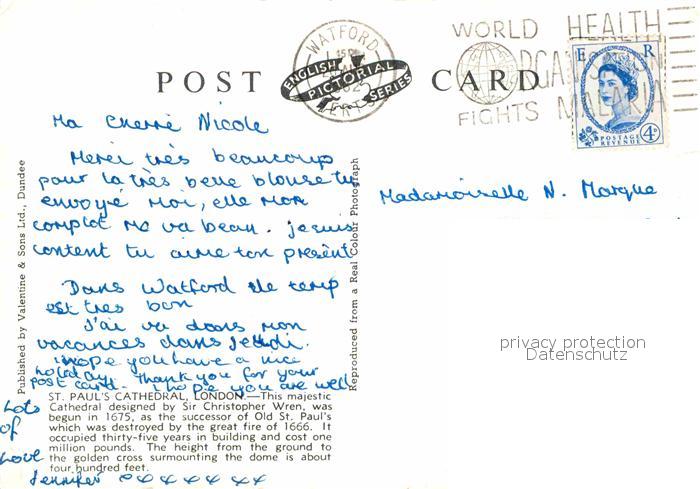 WATFORD
HERTS
WORLD HEALTH
ORGANISATION
FIGHTS MALARIA
E R
POSTAGE
REVENUE
4D
POST CARD
ENGLISH
PICTORIAL
SERIES
Ma Cherrè Nicole
Merci très beaucoup
pour la très belle blouse tu
envoyé moi, elle mon
complot me va beau. je suis
content tu aime ton present
Dans Watford le temp
est tres bon
J'ai va dans mon
vacances dans Jeudi.
I hope you have a nice
holiday. Thank you for your
post card. I hope you are well
Lots
of
Love
Jennifer
Madamoiselle N. Marque
Published by Valentine & Sons Ltd., Dundee
Reproduced from a Real Colour Photograph
privacy protection
Datenschutz
ST. PAUL'S CATHEDRAL, LONDON.—This majestic
Cathedral designed by Sir Christopher Wren, was
begun in 1675, as the successor of Old St. Paul's
which was destroyed by the great fire of 1666. It
occupied thirty-five years in building and cost one
million pounds. The height from the ground to
the golden cross surmounting the dome is about
four hundred feet.